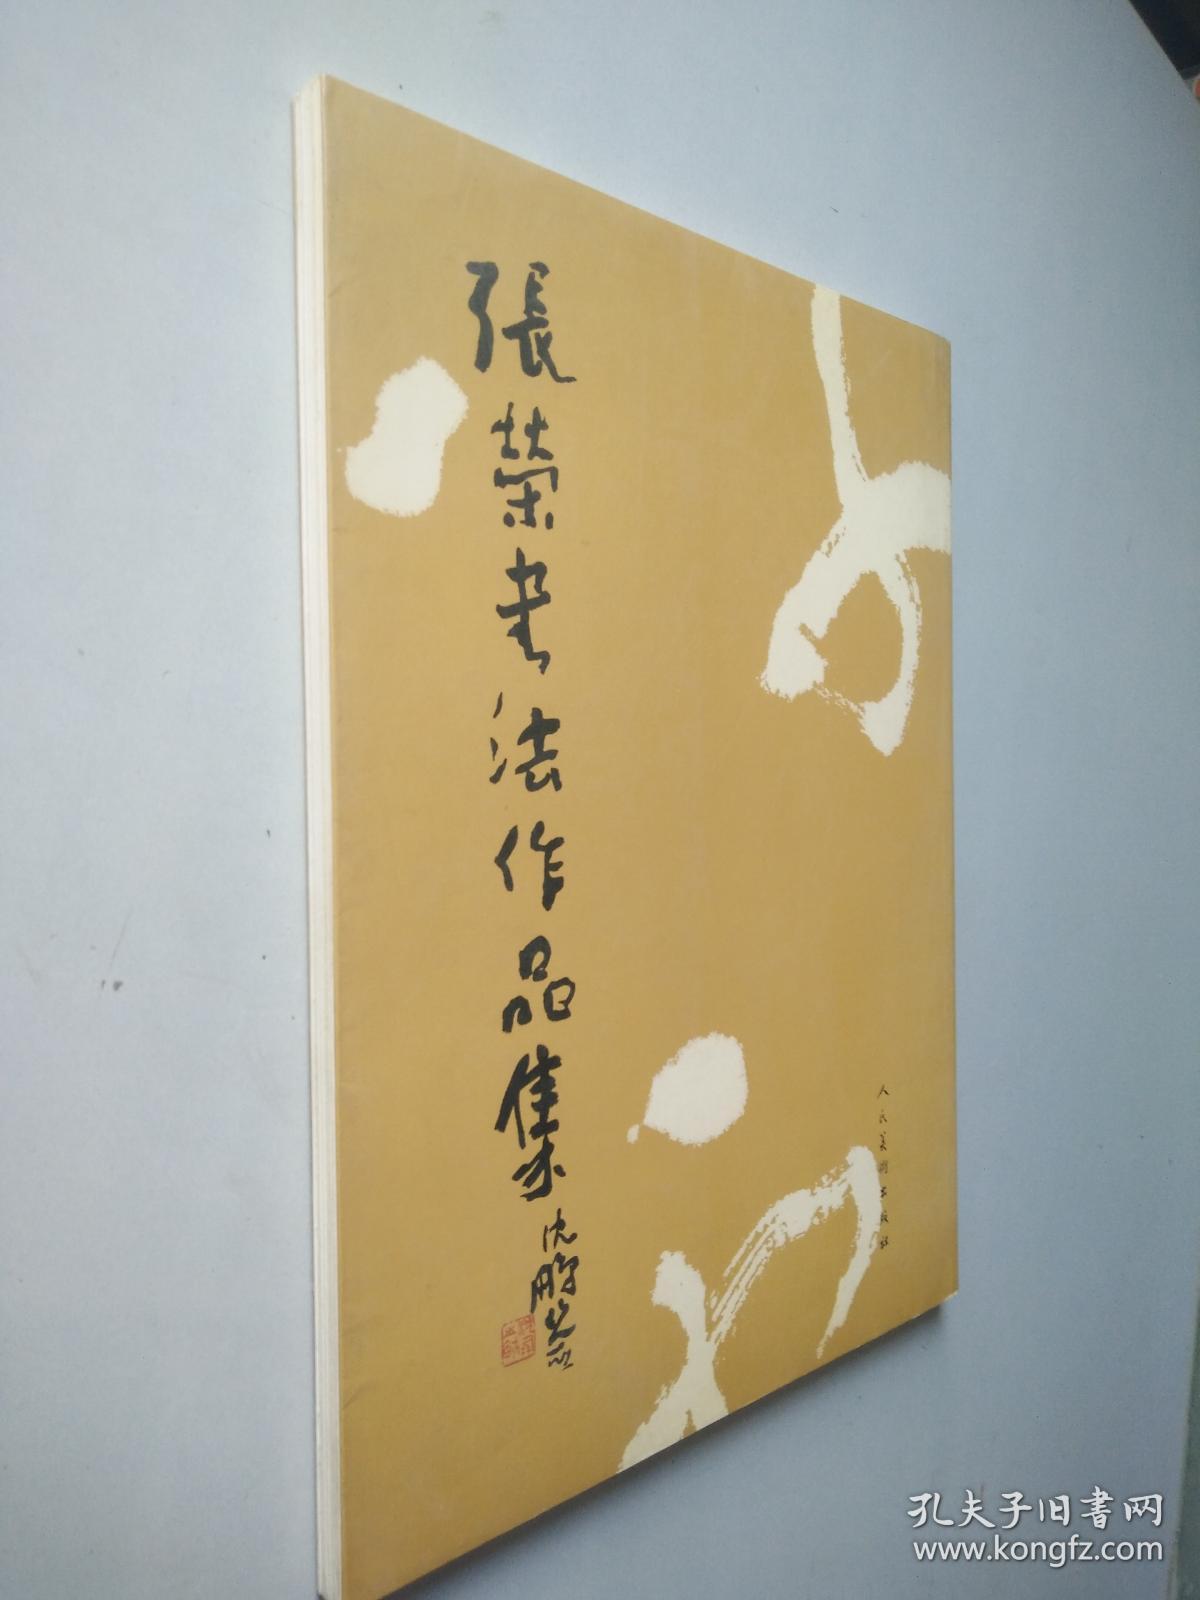 張榮书法作品集
沈鵬題
人民美术出版社
孔夫子旧书网
www.kongfz.com